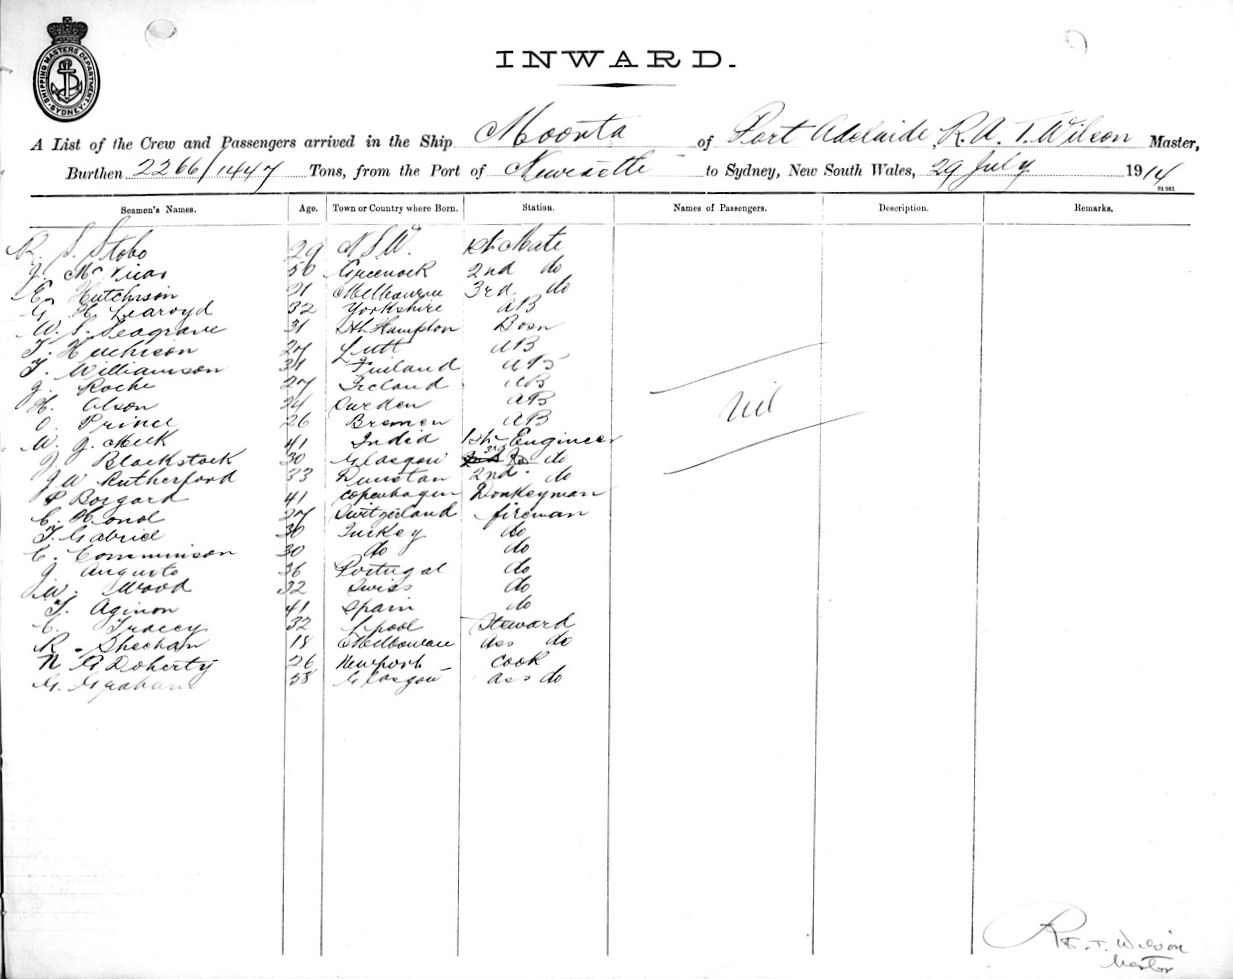 SHIPPING MASTERS DEPARTMENT SYDNEY
INWARD.
A List of the Crew and Passengers arrived in the Ship Moonta of Port Adelaide, R. A. T. Wilson Master,
Burthen 2266/1447 Tons, from the Port of Newcastle to Sydney, New South Wales, 29 July 1914
Seamen's Names. Age. Town or Country where Born. Station. Names of Passengers. Description. Remarks.
R. S. Stobo 29 N S W. 1st Mate
J. Mc 50 Greenock 2nd do
E. Hutchison 21 Melbourne 3rd do
G. H. Learoyd 32 Yorkshire AB
W. S. Seagrave 31 Sth Hampton Bosn
T. Hutchison 27 AB
T. Williamson 31 Finland AB
J. Roche 27 Ireland AB
H. Olson 24 Sweden AB
O. Prince 26 Bremen AB
nil
W. J. Meek 41 India 1st Engineer
J Blackstock 30 Glasgow 3rd do
J W Rutherford 33 Dunstan 2nd. do
P Borgard 41 Copenhagen Donkeyman
C. Honol 27 Switzerland fireman
T. Gabriel 30 Turkey do
C. Comminison 30 do do
J Augusto 36 Portugal do
W. Wood 32 Swiss do
T. Aginon 41 Spain do
C. Tracey 32 L pool Steward
R. Sheehan 18 Melbourne Ass do
N G Doherty 26 Newport Cook
G. Graham 58 Glasgow Ass do
R. A. T. Wilson
Master